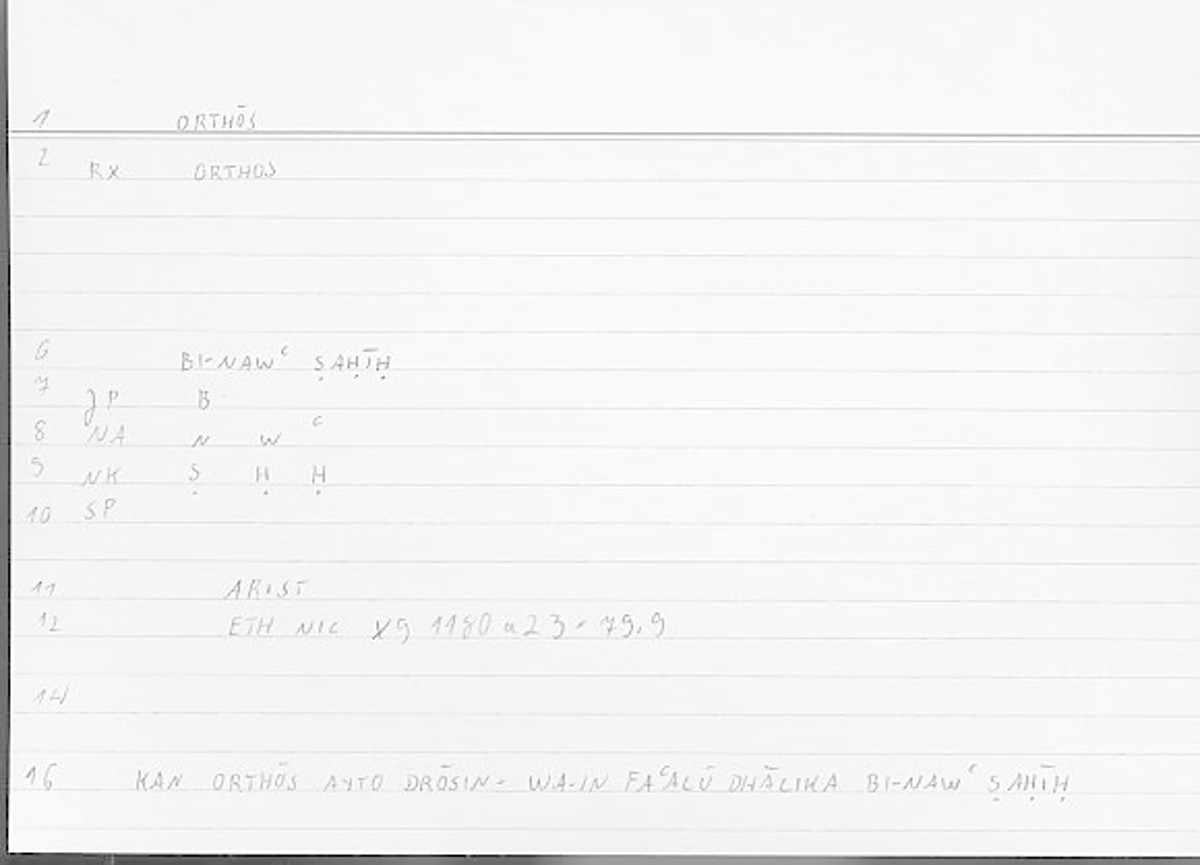 1 ORTHŌS
2 RX ORTHOS
6 BI-NAWᶜ ṢAḤĪḤ
7 JP B
8 NA N W ᶜ
9 NK Ṣ Ḥ Ḥ
10 SP
11 ARIST
12 ETH NIC X9 1180 a 23 - 79.9
14
16 KAN ORTHŌS AYTO DRŌSIN - WA-IN FAᶜALŪ DHĀLIKA BI-NAWᶜ ṢAḤĪḤ